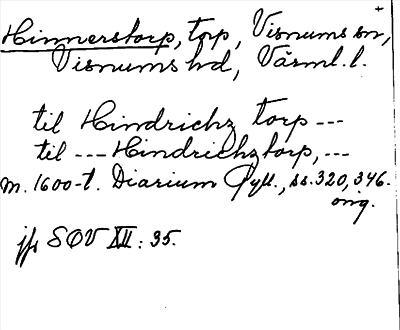 +
Hinnerstorp, torp, Visnums sn,
Visnums hd, Värml. l.
til Hindrichz torp ---
til --- Hindrichztorp, ---
m. 1600-t. Diarium Gyll., ss. 320, 346.
orig.
jfr SOV XII: 35.